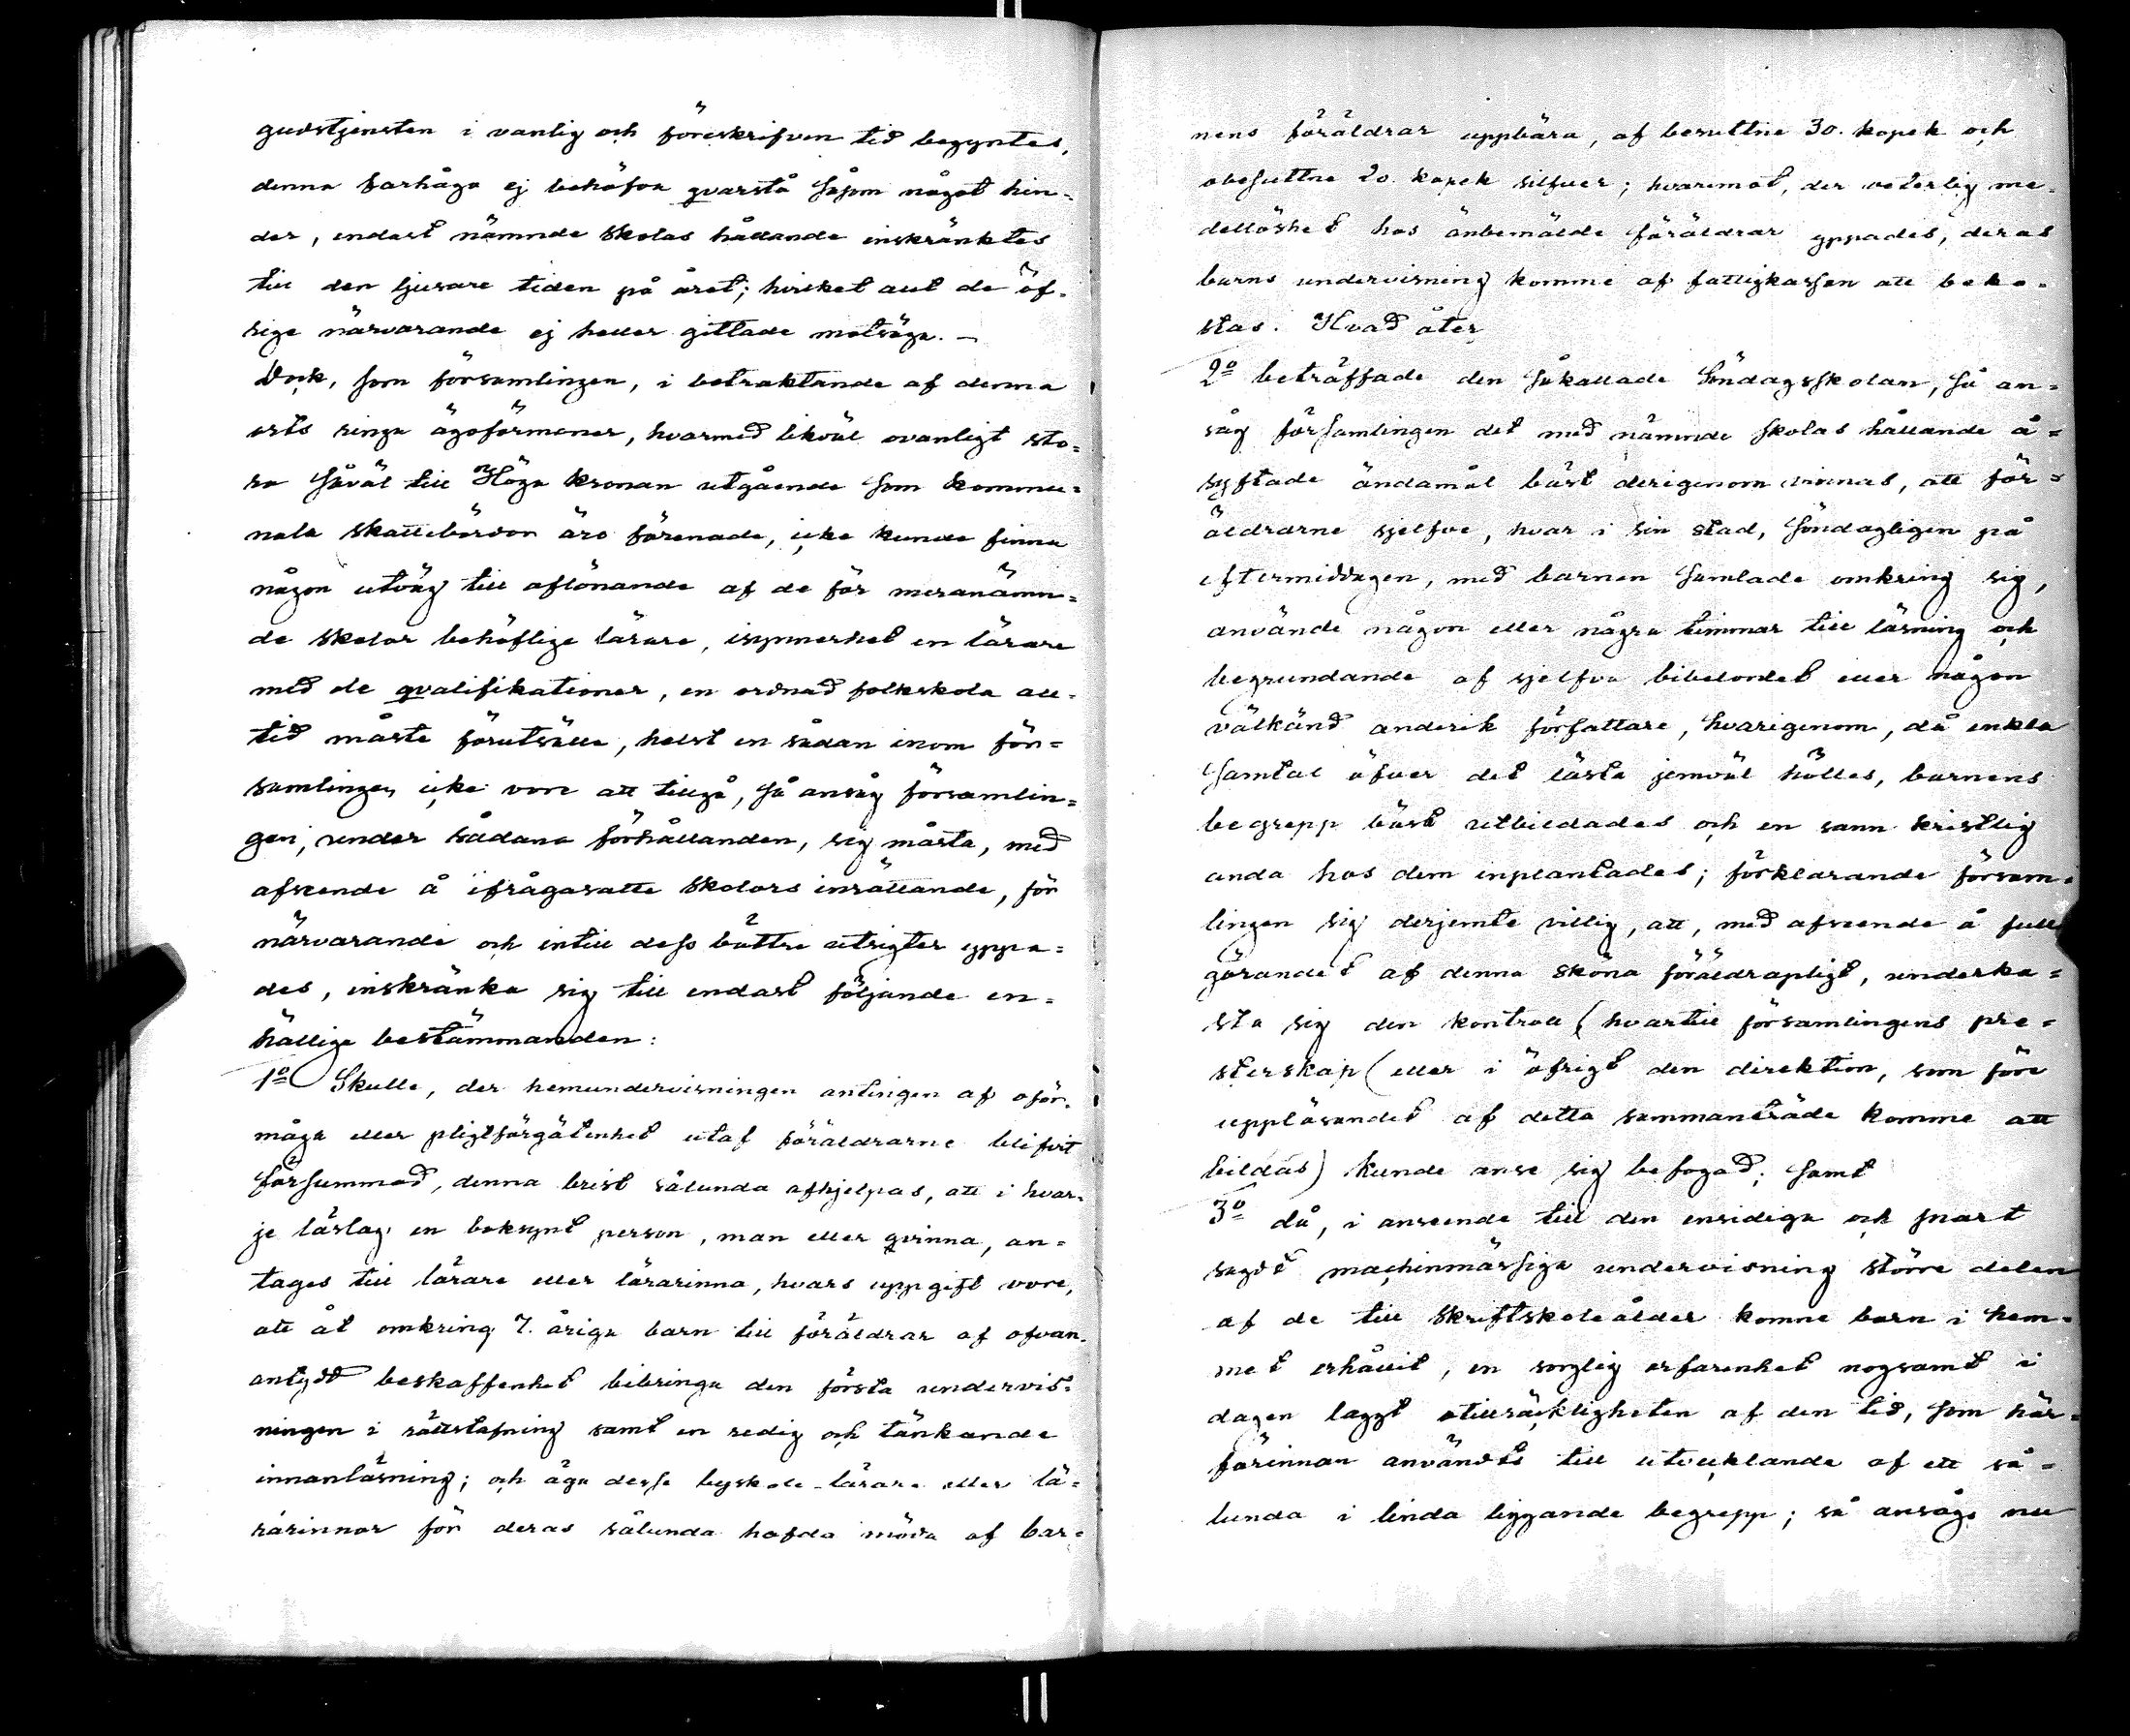 gudstjensten i vanlig och föreskrifven tid begyntes,
denna farhåga ej behöfva qvarstå såsom något hin-
der, endast nämnde skolas hållande inskränktes
till den ljusare tiden på året; hvilket allt de öf-
rige närvarande ej heller gittade motsäga. —
Dock, som församlingen, i betraktande af denna
orts ringa ägoförmoner, hvarmed likväl ovanligt sto-
ra såväl till Höga kronan utgående som kommu-
nala skattebördor äro förenade, icke kunde finna
någon utväg till aflönande af de för meranämn-
de skolor behöflige lärare, isynnerhet en lärare
med de qvalifikationer, en ordnad folkskola all-
tid måste förutsätta, helst en sådan inom för-
samlingen icke vore att tillgå, så ansåg församlin-
gen, under sådana förhållanden, sig måsta, med
afseende å ifrågasatte skolors inrättande, för
närvarande och intill dess bättre utsigter yppa-
des, inskränka sig till endast följande en-
hällige bestämmanden:
1º Skulle, der hemundervisningen antingen af oför-
måga eller pligtförgätenhet utaf föräldrarne blifvit
försummad, denna brist sålunda afhjelpas, att i hvar-
je läslag en boksynt person, man eller qvinna, an-
tages till lärare eller lärarinna, hvars uppgift vore,
att åt omkring 7. åriga barn till föräldrar af ofvan-
antydt beskaffenhet bibringa den första undervis-
ningen i rättstafning samt en redig och tänkande
innanläsning; och äga desse byskole-lärare eller lä-
rarinnor för deras sålunda hafda möda af bar-
nens föräldrar uppbära, af besuttne 30. kopek och
obesuttne 20. kopek silfver; hvaremot, der veterlig me-
dellöshet hos änbemälde föräldrar yppades, deras
barns undervisning komme af fattigkassan att beko-
stas. Hvad åter
2º beträffade den såkallade Söndagsskolan, så an-
såg församlingen det med nämnde skolas hållande å-
syftade ändamål bäst derigenom vinnas, att för-
äldrarne sjelfve, hvar i sin stad, söndagligen på
eftermiddagen, med barnen samlade omkring sig,
använde någon eller några timmar till läsning och
begrundande af sjelfva bibelordet eller någon
välkänd anderik författare, hvarigenom, då enkla
samtal öfver det lästa jemväl hölles, barnens
begrepp bäst utbildades och en sann kristlig
anda hos dem inplantades; förklarande försam-
lingen sig derjemte villig, att, med afseende å full-
görandet af denna sköna föräldrapligt, underka-
sta sig den kontroll hvartill församlingens pre-
sterskap (eller i öfrigt den direktion, som före
upplösandet af detta sammanträde komme att
bildas) kunde anse sig befogad; samt
3º då, i anseende till den ensidiga och snart
sagdt machinmässiga undervisning större delen
af de till skriftskoleålder komne barn i hem-
met erhållit, en sorglig erfarenhet nogsamt i
dagen laggt otillräckligheten af den tid, som här-
förinnan användts till utvecklande af ett så-
lunda i linda liggande begrepp; så ansåge nu